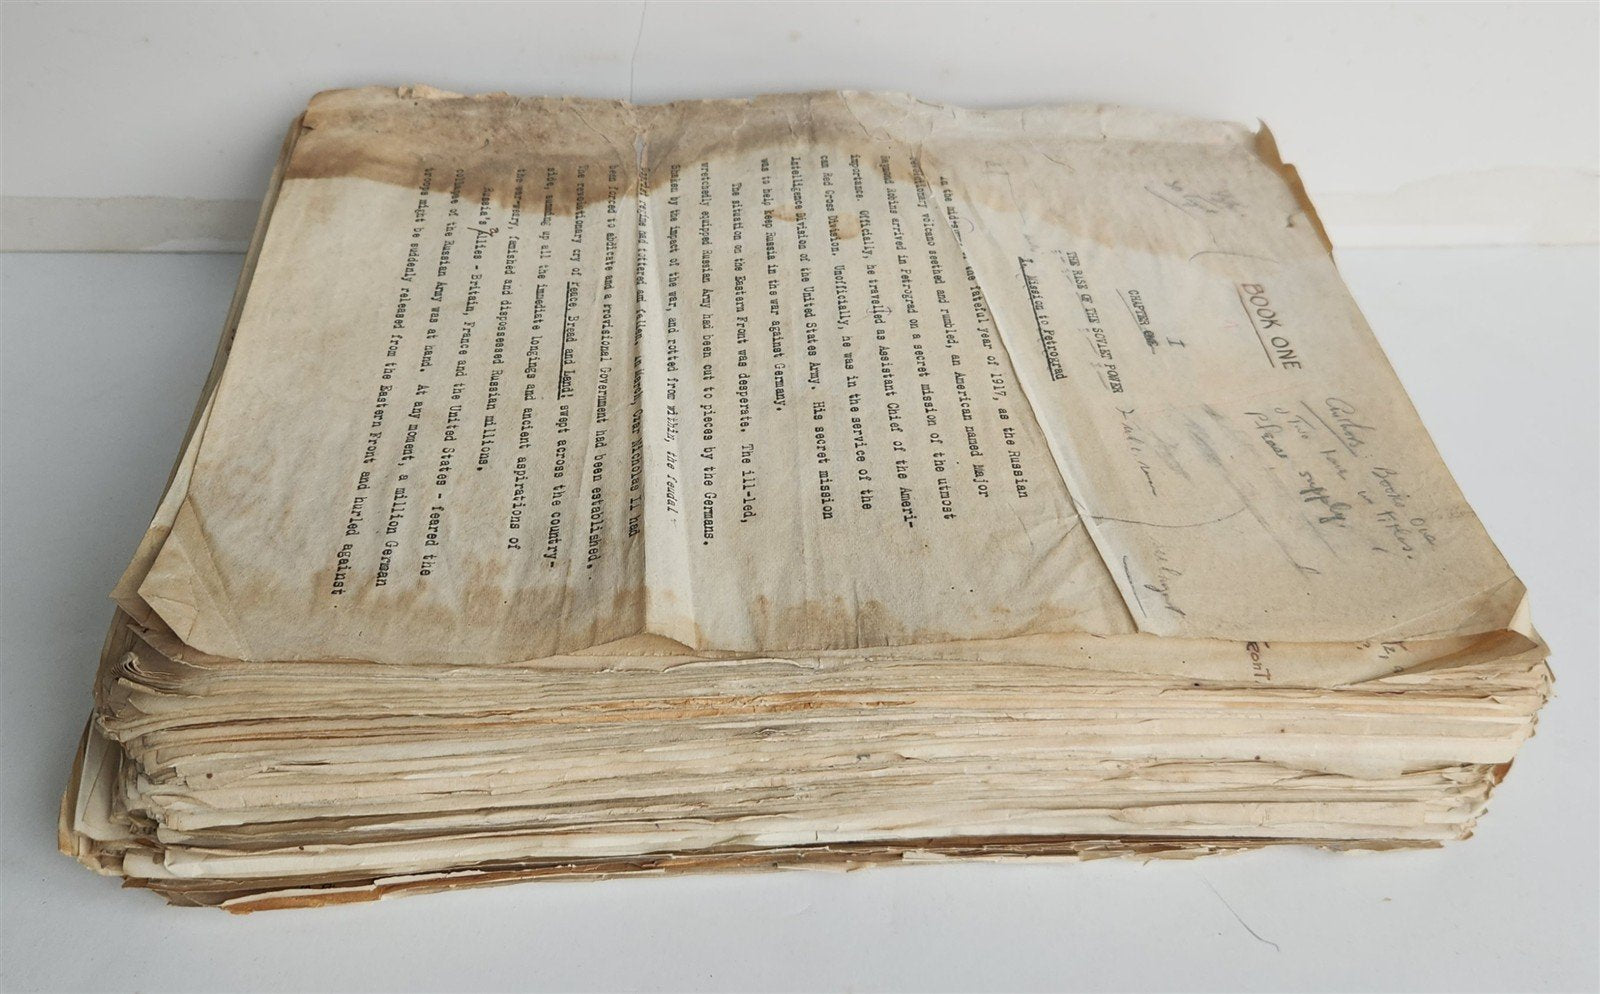 BOOK ONE
Authors: Book One
Title here in titles.
Please supply.
I
CHAPTER One
THE RISE OF THE SOVIET POWER
1. Mission to Petrograd
In the mid- of the fateful year of 1917, as the Russian
revolutionary volcano seethed and rumbled, an American named Major
Raymond Robins arrived in Petrograd on a secret mission of the utmost
importance. Officially, he travelled as Assistant Chief of the Ameri-
can Red Cross Division. Unofficially, he was in the service of the
Intelligence Division of the United States Army. His secret mission
was to help keep Russia in the war against Germany.
The situation on the Eastern Front was desperate. The ill-led,
wretchedly equipped Russian Army had been cut to pieces by the Germans.
Shaken by the impact of the war, and rotted from within, the feudal
Czarist regime had tottered and fallen. In March, Czar Nicholas II had
been forced to abdicate and a Provisional Government had been established.
The revolutionary cry of Peace, Bread and Land! swept across the country-
side, summing up all the immediate longings and ancient aspirations of
the war-weary, famished and dispossessed Russian millions.
Russia's Allies - Britain, France and the United States - feared the
collapse of the Russian Army was at hand. At any moment, a million German
troops might be suddenly released from the Eastern Front and hurled against